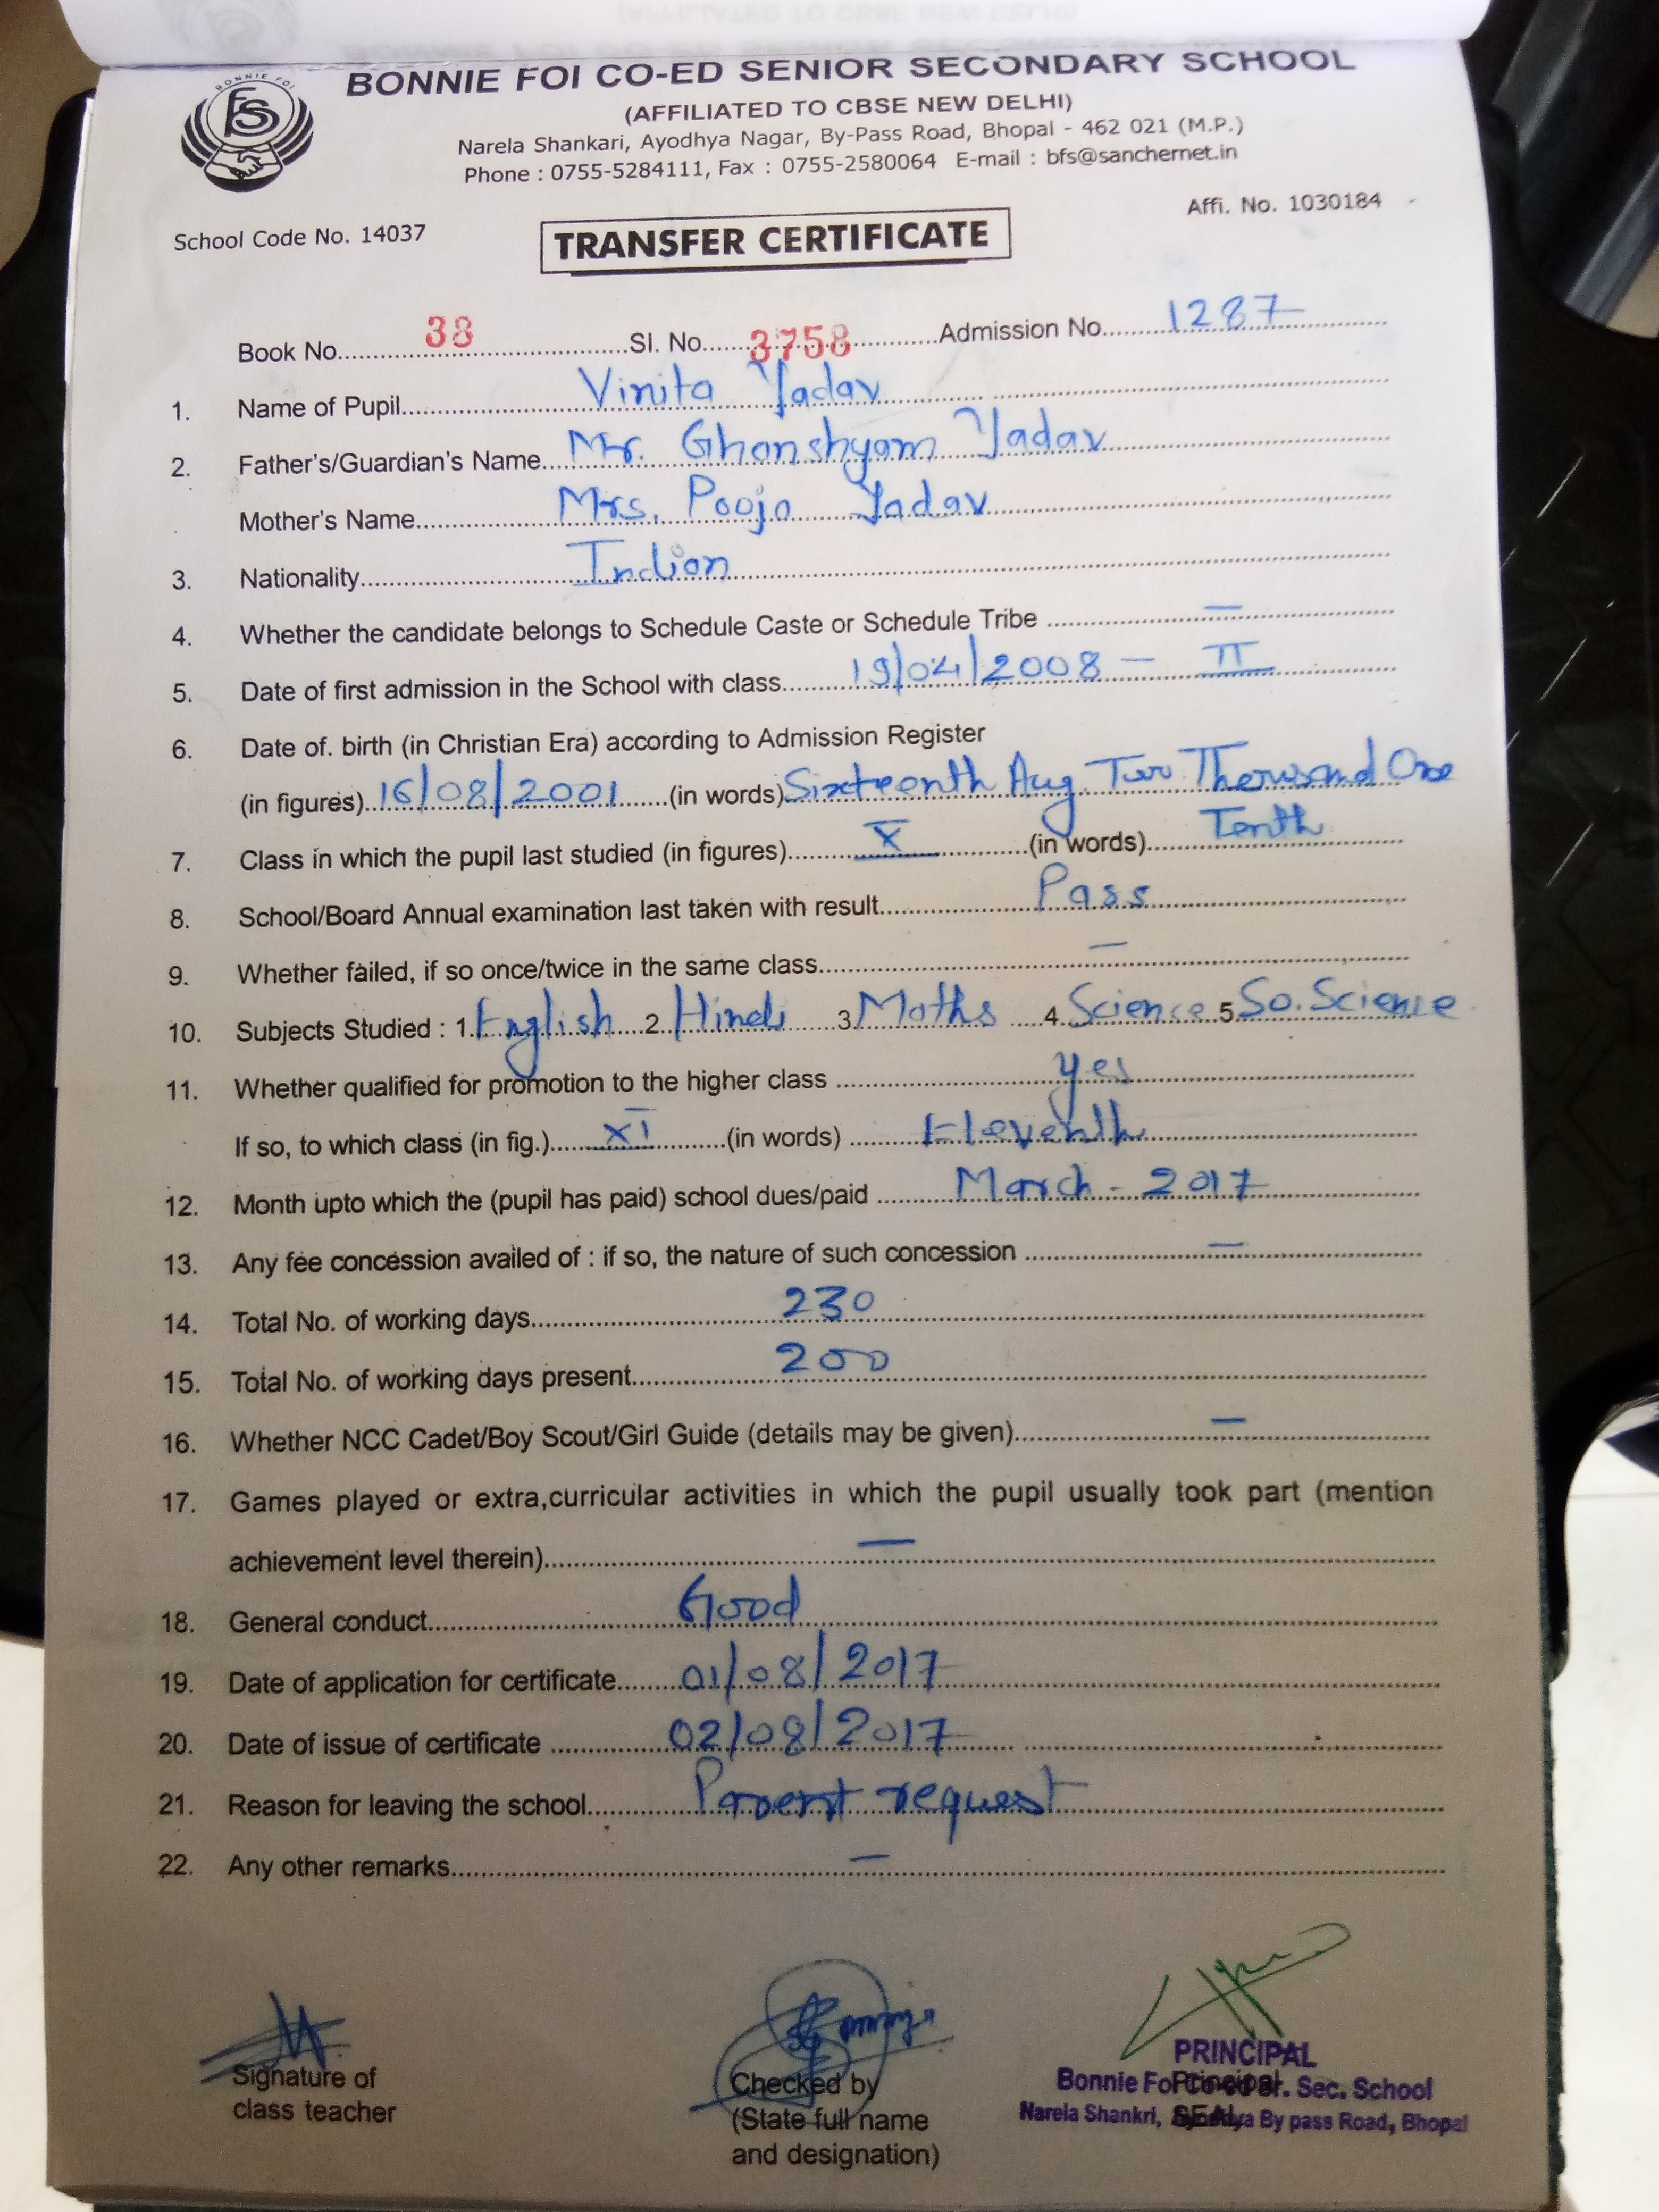 BONNIE FOI
BONNIE FOI CO-ED SENIOR SECONDARY SCHOOL
(AFFILIATED TO CBSE NEW DELHI)
Narela Shankari, Ayodhya Nagar, By-Pass Road, Bhopal - 462 021 (M.P.)
Phone : 0755-5284111, Fax : 0755-2580064 E-mail : bfs@sanchernet.in
Affi. No. 1030184
School Code No. 14037
TRANSFER CERTIFICATE
Book No. 38 Sl. No. 3758 Admission No. 1287
1. Name of Pupil Vinita Yadav
2. Father's/Guardian's Name Mr. Ghanshyam Yadav
Mother's Name Mrs. Pooja Yadav
3. Nationality Indian
4. Whether the candidate belongs to Schedule Caste or Schedule Tribe —
5. Date of first admission in the School with class 19/04/2008 — II
6. Date of. birth (in Christian Era) according to Admission Register
(in figures) 16/08/2001 (in words) Sixteenth Aug. Two Thousand One
7. Class in which the pupil last studied (in figures) X (in words) Tenth
8. School/Board Annual examination last taken with result Pass
9. Whether failed, if so once/twice in the same class —
10. Subjects Studied : 1. English 2. Hindi 3. Maths 4. Science 5. So. Science
11. Whether qualified for promotion to the higher class yes
If so, to which class (in fig.) XI (in words) Eleventh
12. Month upto which the (pupil has paid) school dues/paid March - 2017
13. Any fee concession availed of : if so, the nature of such concession —
14. Total No. of working days 230
15. Total No. of working days present 200
16. Whether NCC Cadet/Boy Scout/Girl Guide (details may be given) —
17. Games played or extra,curricular activities in which the pupil usually took part (mention
achievement level therein) —
18. General conduct Good
19. Date of application for certificate 01/08/2017
20. Date of issue of certificate 02/08/2017
21. Reason for leaving the school Parent request
22. Any other remarks —
Signature of
class teacher
Checked by
(State full name
and designation)
PRINCIPAL
Bonnie Foi Co-ed Sr. Sec. School
Narela Shankri, Ayodhya By pass Road, Bhopal
Principal
SEAL